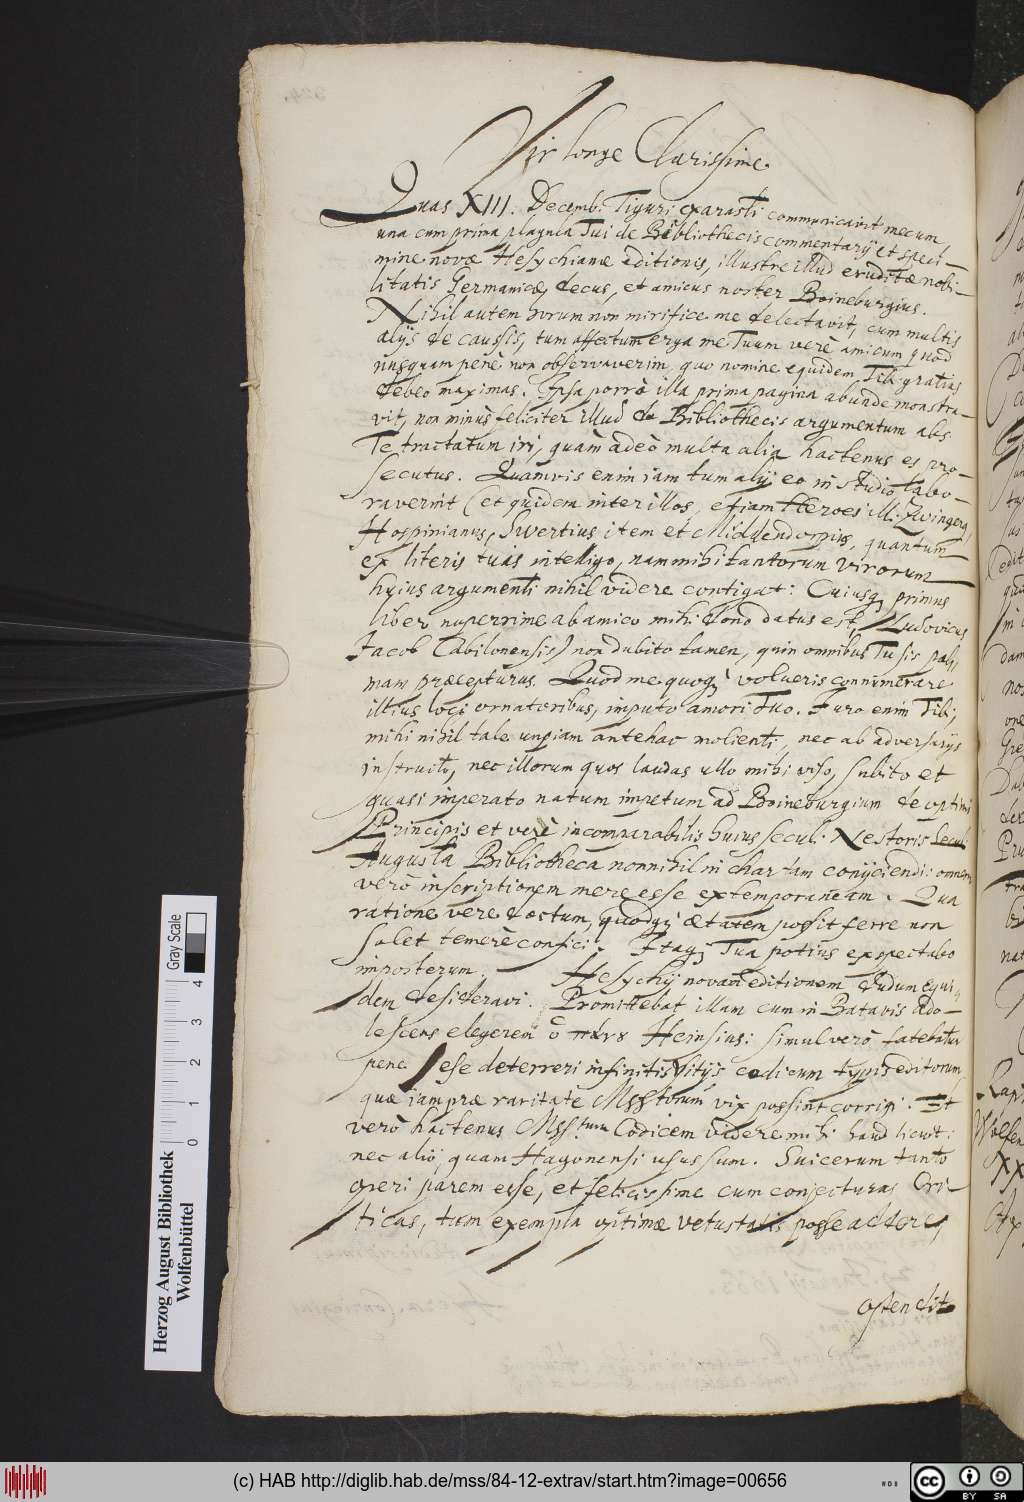 Vir longe Clarissime.
Quas XIII. Decemb. Tiguri exarasti communicavit mecum,
una cum prima plagula Tui de Bibliothecis commentarij et speci-
mine novæ Hesychianæ editionis, illustre illud eruditæ nobi-
litatis Germanicæ, decus, et amicus noster Boineburgius.
Nihil autem horum non mirifice me delectavit, cum multis
alijs de caussis, tum affectum erga me Tuum verè amicum quod
nusquam penè non observaverim, quo nomine equidem Tibi gratias
debeo maximas. Ipsa porrò illa prima pagina abunde monstra-
vit, non minùs feliciter illud de Bibliothecis argumentum abs
Te tractatum iri, quàm adeò multa alia hactenus es pro-
secutus. Quamvis enim iam tum alij eo in studio labo-
raverint (et quidem inter illos, etiam Heroes illi Zwingerg,
Hospinianus, Swertius item et Middendorpius, quantum
ex literis tuis intelligo, nam mihi tantorum virorum
huius argumenti nihil videre contigat: Cuiusq; primus
liber nuperrime ab amico mihi dono datus est, Ludovicus
Jacob Cabilonensis) non dubito tamen, quin omnibus Tu sis pal-
mam præcepturus. Quod me quoq; volueris connumerare
illius loci ornatoribus, imputo amori tuo. Juro enim Tibi,
mihi nihil tale unquam antehac molienti, nec ab adversarijs
instructo, nec illorum quos laudas ullo mihi viso, subito et
quasi imperato natum impetum ad Boineburgium de optimi
Principis et verè incomparabilis huius seculi Nestoris
Augusta Bibliotheca nonnihil in chartam conijciendi: omnem
verò inscriptionem mere esse extemporaneam. Qua
ratione vere doctum, quodq; ætatem possit ferre non
solet temerè confici. Itaq; Tua potius exspectabo
imposterum. Hesychij novam editionem dudum equi-
dem desideravi. Promittebat illam cum in Batavis ado-
lescens elegerem ὁ πάνυ Heinsius: simul verò fatebatur
pene sese deterreri infinitis vitijs codicum typis editorum
quæ iam præ raritate Msstorum vix possint corrigi. Et
verò hactenus Mss.tum Codicem videre mihi haud licuit:
nec alio, quam Hagonensi usus sum. Suicerum tanto
operi parem esse, et felicissime cum conjecturas Cri-
ticas, tum exempla optimæ vetustatis posse addere,
ostendit
Herzog August Bibliothek
Wolfenbüttel
0 1 2 3 4
Gray Scale
(c) HAB http://diglib.hab.de/mss/84-12-extrav/start.htm?image=00656
cc BY SA